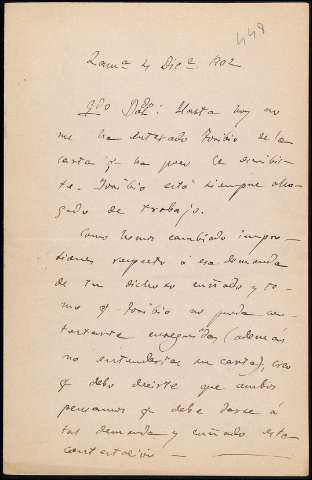 448
Zamª 4 Dicе. 902
Qdo : Hasta hoy no
me ha enterado Toribio de la
carta q ha poco le escribis-
te. Toribio está siempre aho-
gado de trabajo.
Como hemos cambiado impre-
siones respecto á esa demanda
de tu dichoso cuñado y co-
mo q Toribio no pueda con-
testarte enseguida (además
no entenderías su carta), creo
q debo decirte que ambos
pensamos q debe darse á
tas demanda y cuñado esta
contestación —